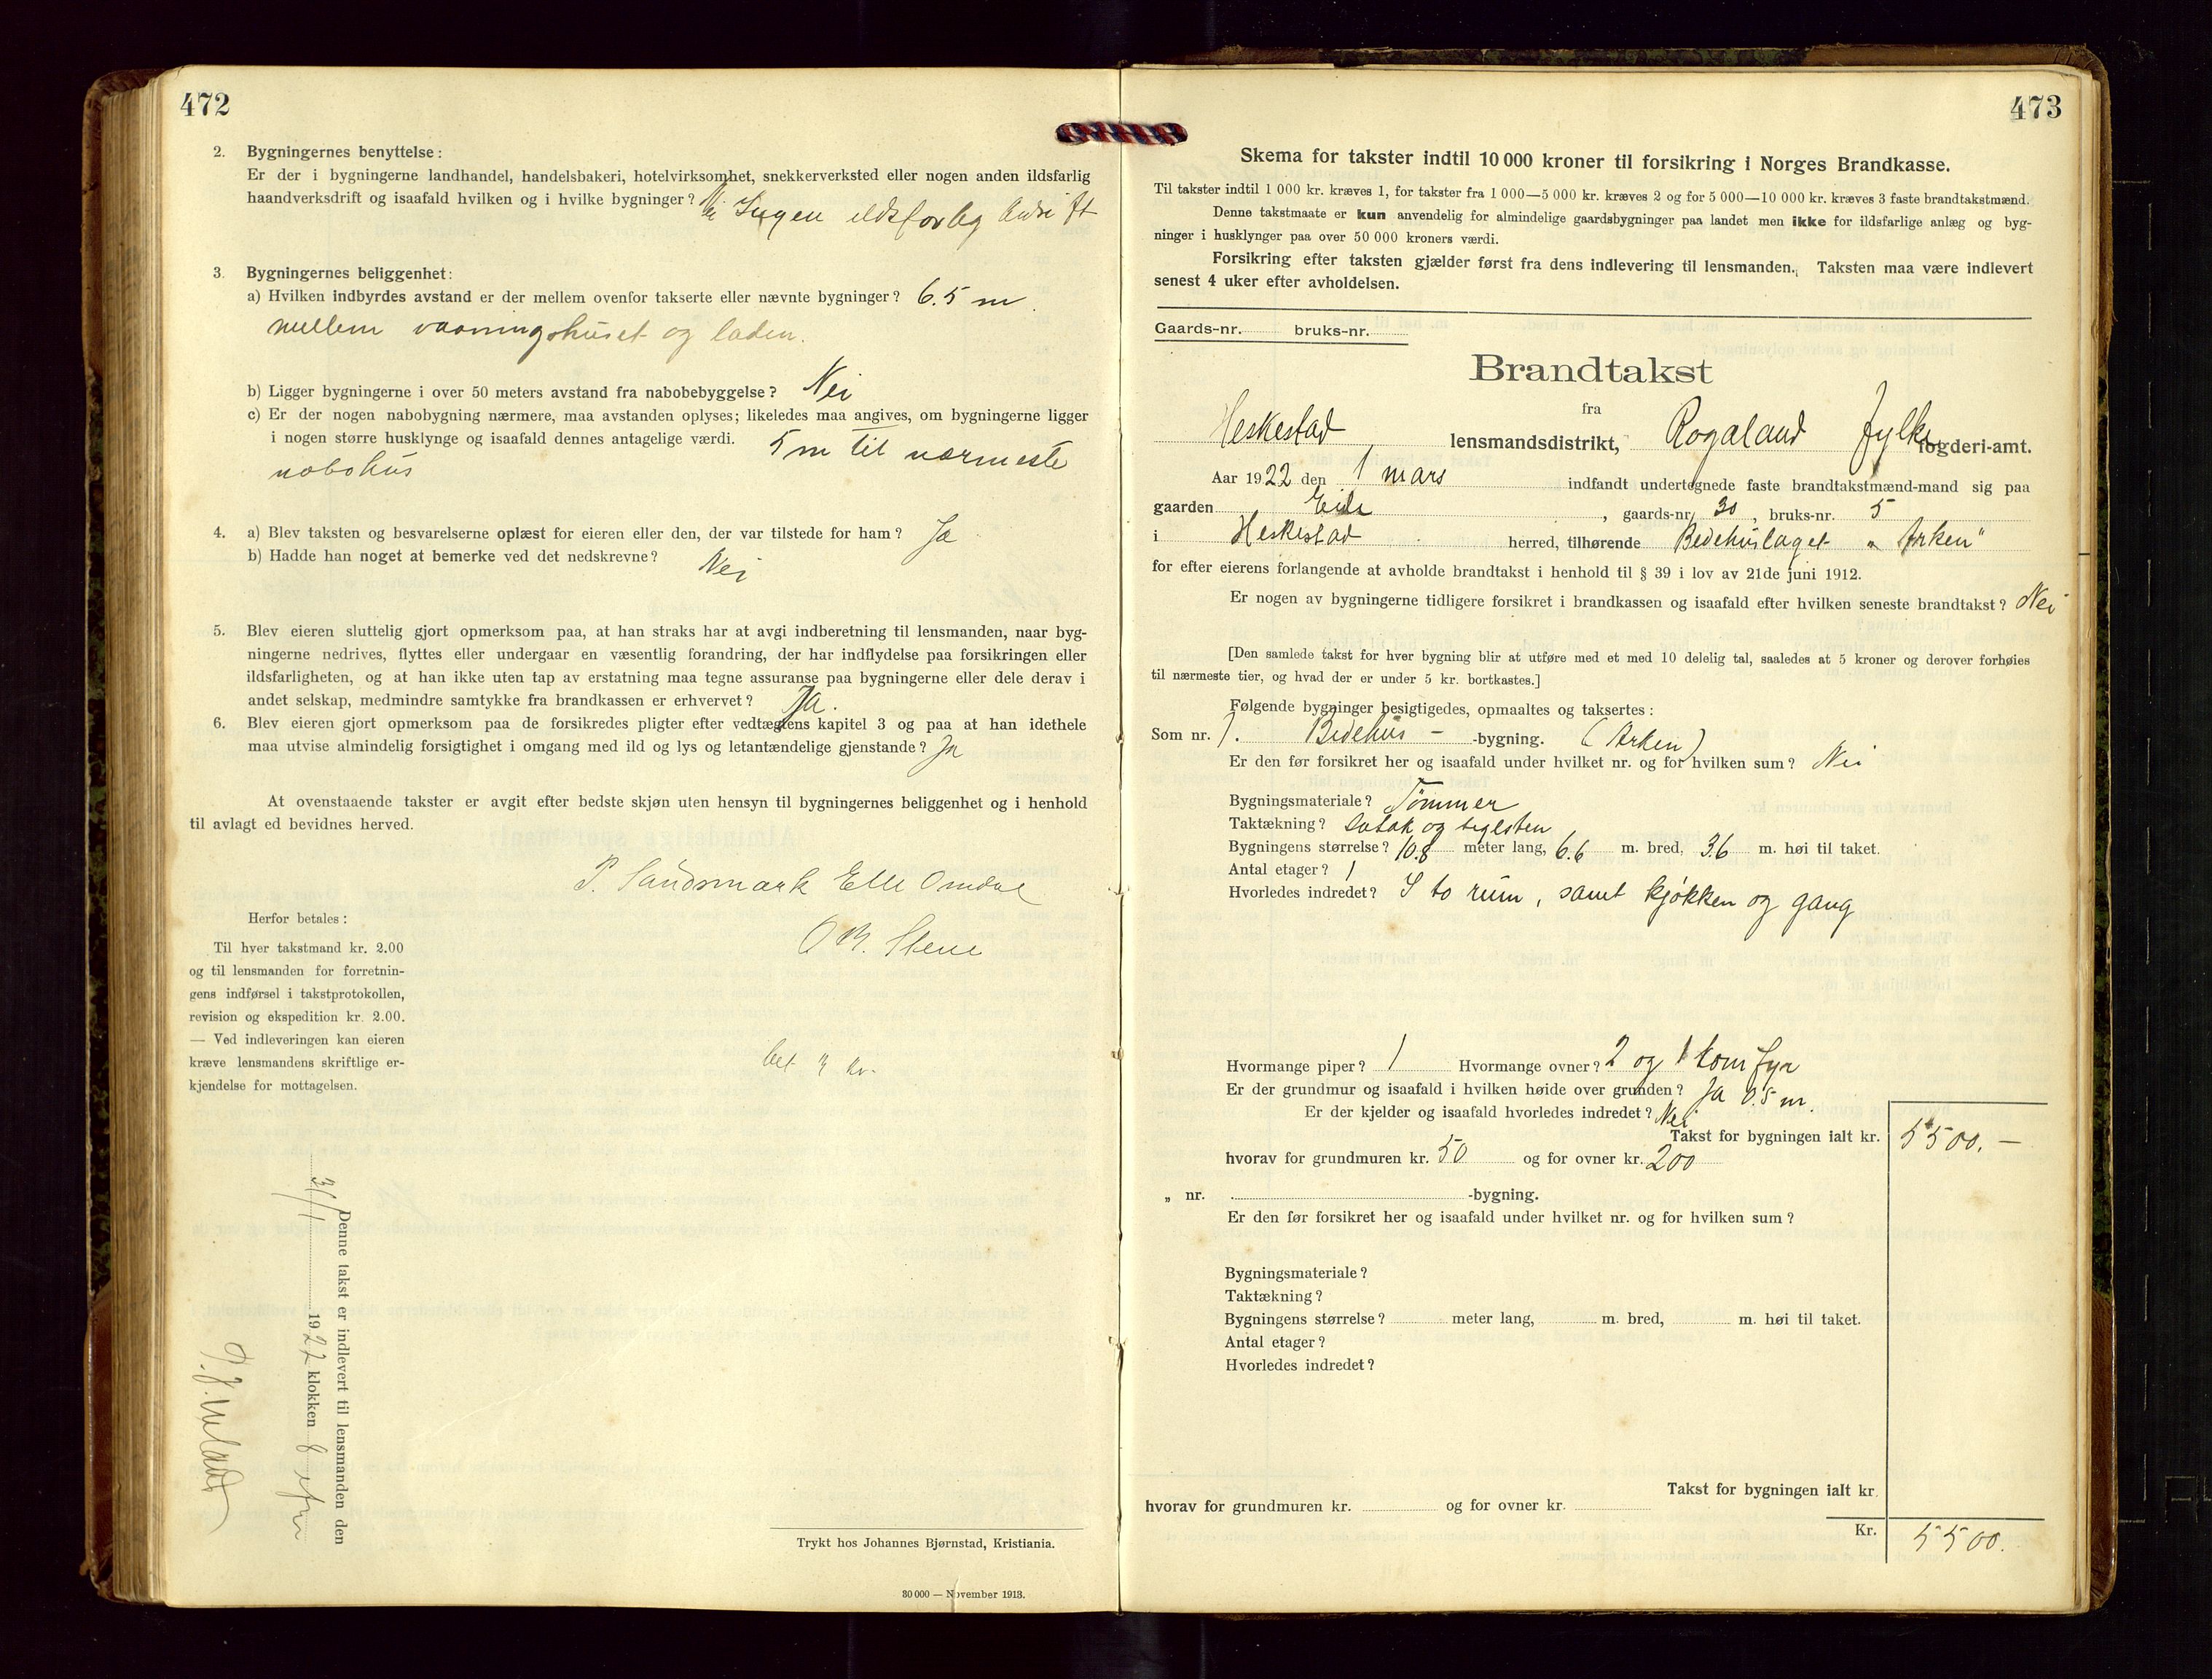 472
2. Bygningernes benyttelse:
Er der i bygningerne landhandel, handelsbakeri, hotelvirksomhet, snekkerverksted eller nogen anden ildsfarlig
haandverksdrift og isaafald hvilken og i hvilke bygninger? Nei Ingen ildsfarlig bedrift
3. Bygningernes beliggenhet:
a) Hvilken indbyrdes avstand er der mellem ovenfor takserte eller nævnte bygninger? 6.5 m
mellem vaaningshuset og laden.
b) Ligger bygningerne i over 50 meters avstand fra nabobebyggelse? Nei
c) Er der nogen nabobygning nærmere, maa avstanden oplyses; likeledes maa angives, om bygningerne ligger
i nogen større husklynge og isaafald dennes antagelige værdi. 5 m til nærmeste
nabohus
4. a) Blev taksten og besvarelserne oplæst for eieren eller den, der var tilstede for ham? Ja
b) Hadde han noget at bemerke ved det nedskrevne? Nei
5. Blev eieren sluttelig gjort opmerksom paa, at han straks har at avgi indberetning til lensmanden, naar byg-
ningerne nedrives, flyttes eller undergaar en væsentlig forandring, der har indflydelse paa forsikringen eller
ildsfarligheten, og at han ikke uten tap av erstatning maa tegne assuranse paa bygningerne eller dele derav i
andet selskap, medmindre samtykke fra brandkassen er erhvervet? Ja.
6. Blev eieren gjort opmerksom paa de forsikredes pligter efter vedtægtens kapitel 3 og paa at han idethele
maa utvise almindelig forsigtighet i omgang med ild og lys og letantændelige gjenstande? Ja
At ovenstaaende takster er avgit efter bedste skjøn uten hensyn til bygningernes beliggenhet og i henhold
til avlagt ed bevidnes herved.
P. Sandsmark Elle Omdal
O B. Stene
Herfor betales:
Til hver takstmand kr. 2.00
og til lensmanden for forretnin-
gens indførsel i takstprotokollen,
revision og ekspedition kr. 2.00.
— Ved indleveringen kan eieren
kræve lensmandens skriftlige er-
kjendelse for mottagelsen.
bet kr.
Denne takst er indlevert til lensmanden den
3/1 1922 klokken 6 efm
Trykt hos Johannes Bjørnstad, Kristiania.
30 000 — November 1913.
473
Skema for takster indtil 10 000 kroner til forsikring i Norges Brandkasse.
Til takster indtil 1 000 kr. kræves 1, for takster fra 1 000—5 000 kr. kræves 2 og for 5 000—10 000 kr. kræves 3 faste brandtakstmænd.
Denne takstmaate er kun anvendelig for almindelige gaardsbygninger paa landet men ikke for ildsfarlige anlæg og byg-
ninger i husklynger paa over 50 000 kroners værdi.
Forsikring efter taksten gjælder først fra dens indlevering til lensmanden. Taksten maa være indlevert
senest 4 uker efter avholdelsen.
Gaards-nr. bruks-nr.
Brandtakst
fra
Heskestad lensmandsdistrikt, Rogaland fylke fogderi-amt.
Aar 1922 den 1 mars indfandt undertegnede faste brandtakstmænd-mand sig paa
gaarden Eide, gaards-nr. 30, bruks-nr. 5
i Heskestad herred, tilhørende Bedehuslaget „Arken"
for efter eierens forlangende at avholde brandtakst i henhold til § 39 i lov av 21de juni 1912.
Er nogen av bygningerne tidligere forsikret i brandkassen og isaafald efter hvilken seneste brandtakst? Nei
[Den samlede takst for hver bygning blir at utføre med et med 10 delelig tal, saaledes at 5 kroner og derover forhøies
til nærmeste tier, og hvad der er under 5 kr. bortkastes.]
Følgende bygninger besigtigedes, opmaaltes og taksertes:
Som nr. 1. Bedehus - -bygning. (Arken)
Er den før forsikret her og isaafald under hvilket nr. og for hvilken sum? Nei
Bygningsmateriale? Tømmer
Taktækning? Sutak og teglsten
Bygningens størrelse? 10.8 meter lang, 6.6 m. bred, 3.6 m. høi til taket.
Antal etager? 1
Hvorledes indredet? I to rum, samt kjøkken og gang
Hvormange piper? 1 Hvormange ovner? 2 og 1 komfyr
Er der grundmur og isaafald i hvilken høide over grunden? Ja 0.5 m.
Er der kjelder og isaafald hvorledes indredet? Nei
Takst for bygningen ialt kr. 5500.—
hvorav for grundmuren kr. 50 og for ovner kr. 200
„ nr. -bygning.
Er den før forsikret her og isaafald under hvilket nr. og for hvilken sum?
Bygningsmateriale?
Taktækning?
Bygningens størrelse? meter lang, m. bred, m. høi til taket.
Antal etager?
Hvorledes indredet?
Takst for bygningen ialt kr.
hvorav for grundmuren kr. og for ovner kr.
Kr. 5500.